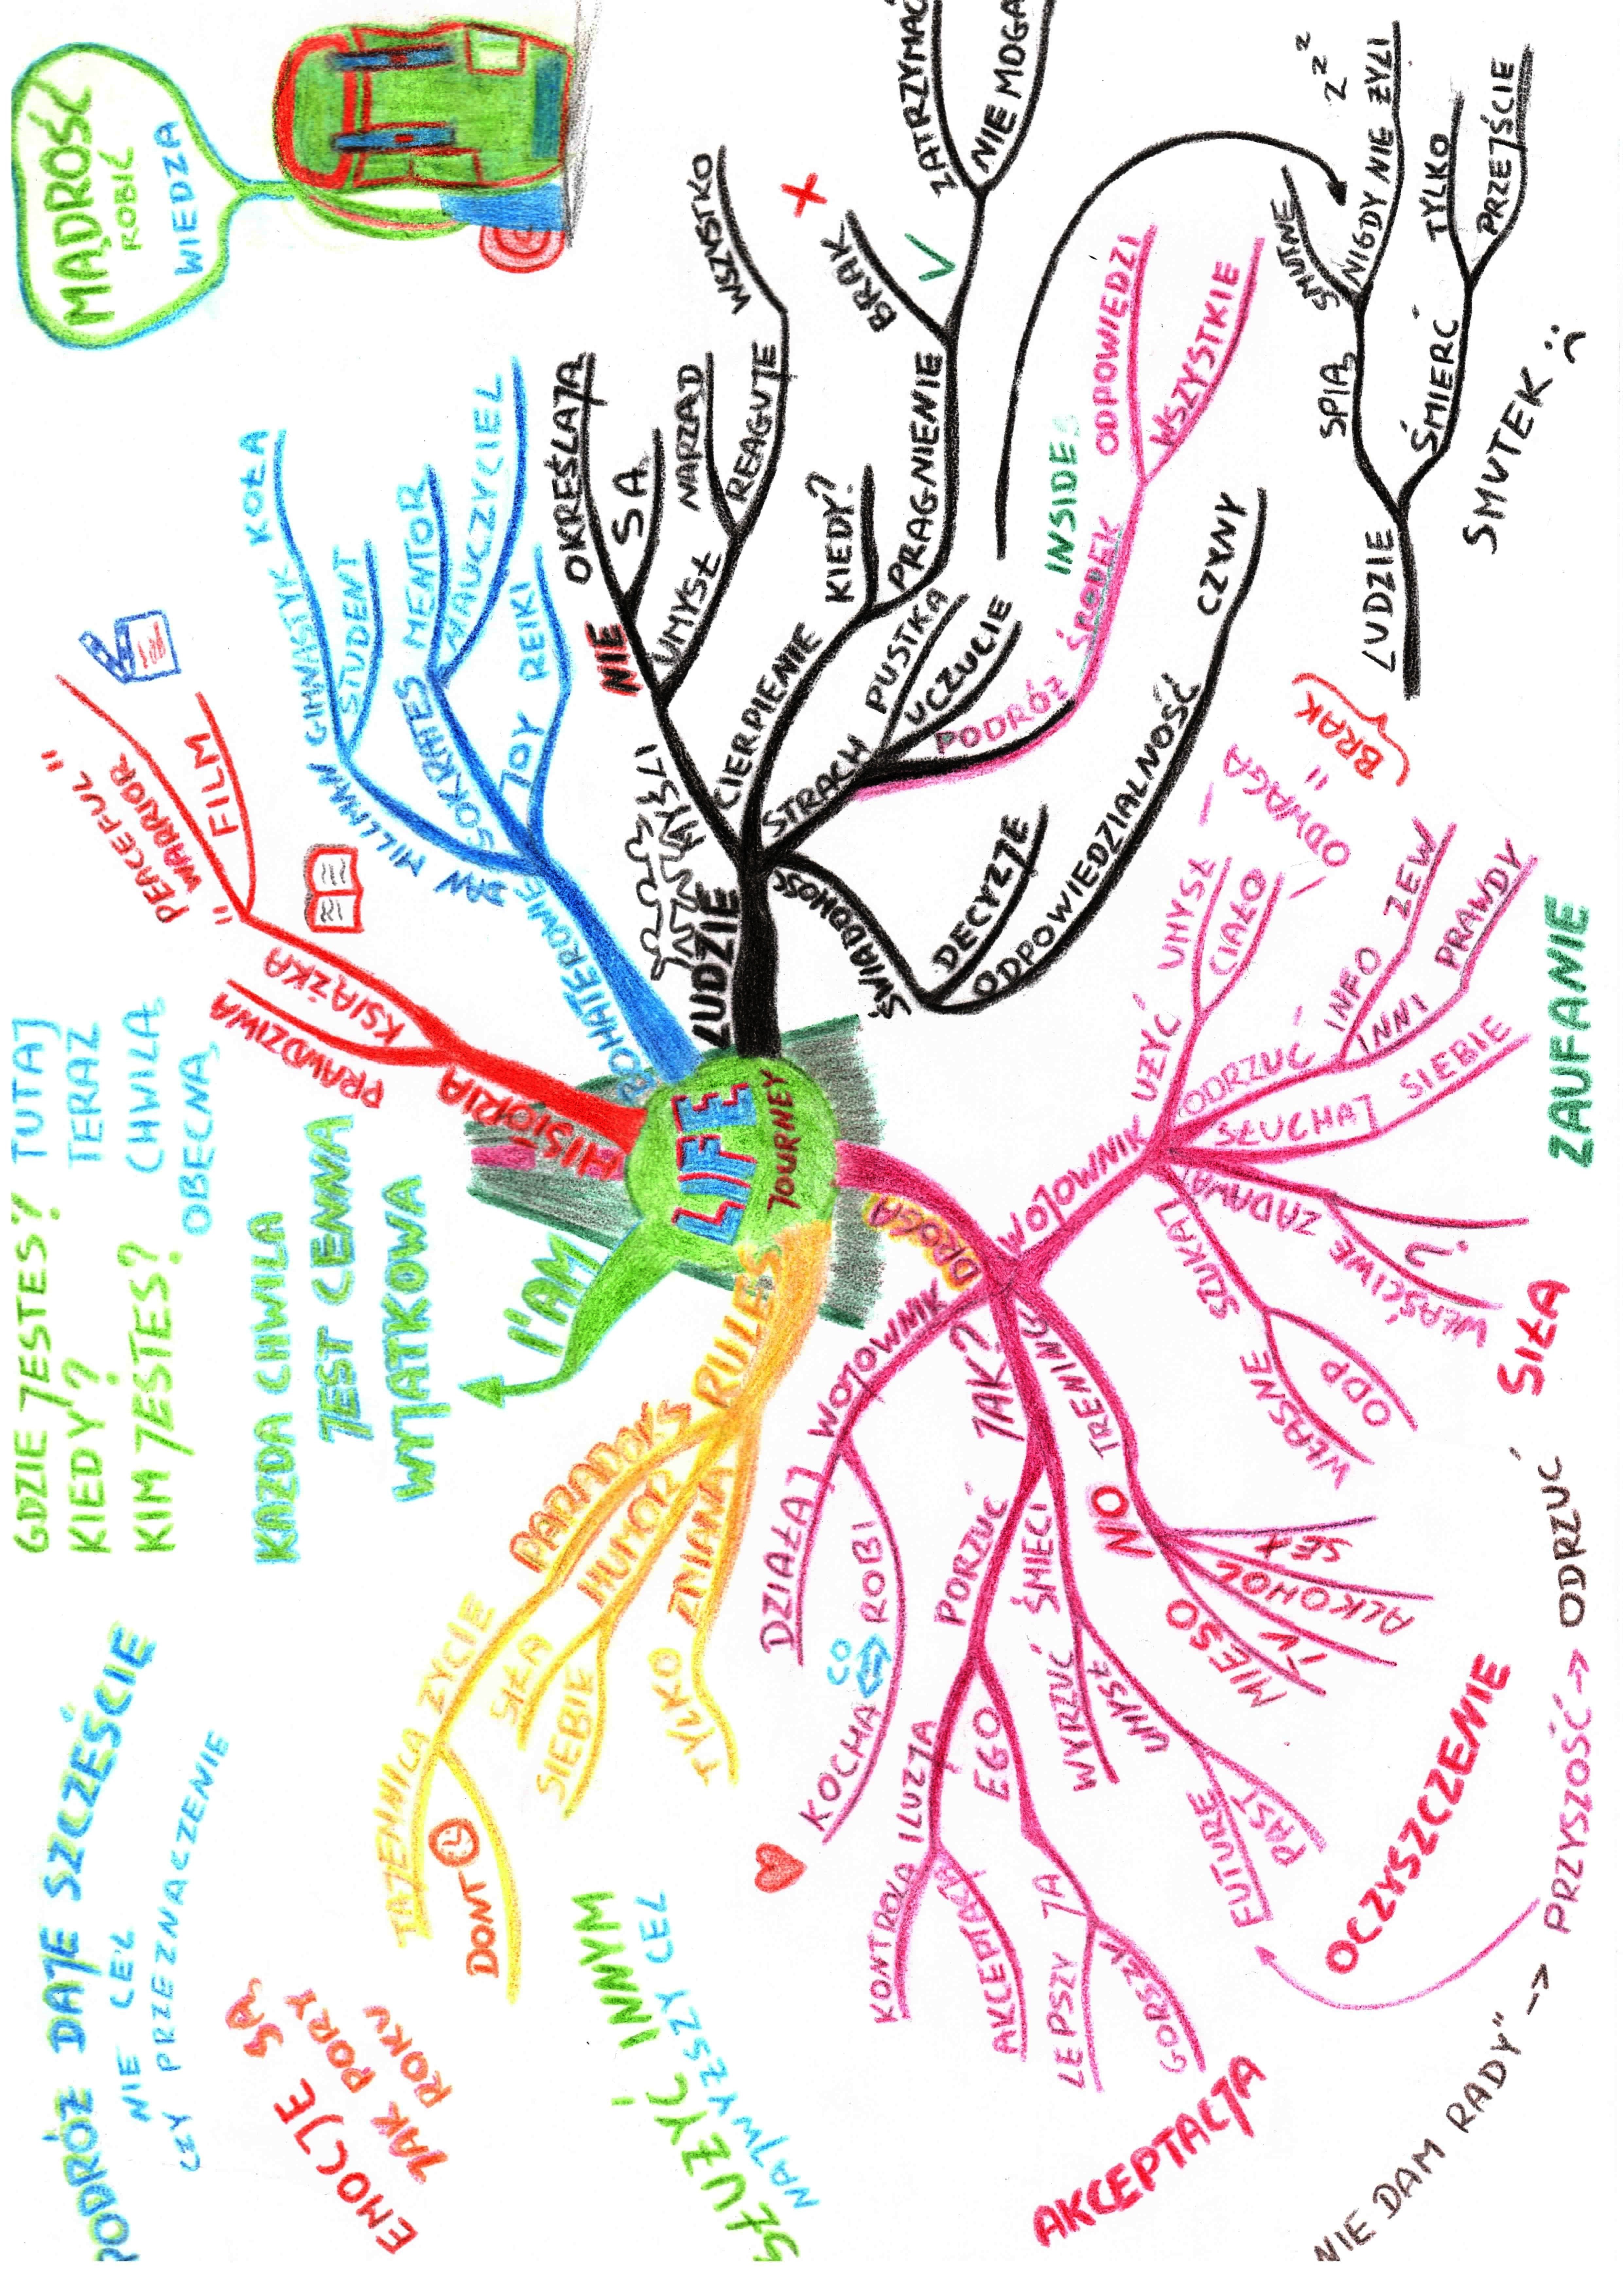 PODRÓŻ DAJE SZCZĘŚCIE
NIE CEL
CZY PRZEZNACZENIE
GDZIE JESTEŚ? TUTAJ
KIEDY? TERAZ
KIM JESTEŚ? CHWILĄ
OBECNĄ
MĄDROŚĆ
ROBIĆ
WIEDZA
KAŻDA CHWILA
JEST CENNA
WYJĄTKOWA
EMOCJE SĄ
JAK PORY
ROKU
SŁUŻYĆ INNYM
NAJWYŻSZY CEL
LIFE
JOURNEY
I'AM
HISTORIA
PRAWDZIWA
KSIĄŻKA
"PEACEFUL
WARRIOR"
FILM
BOHATEROWIE
DAN MILLMAN
GIMNASTYK KOŁA
STUDENT
SOKRATES
MENTOR
NAUCZYCIEL
JOY
REIKI
LUDZIE
MYŚLI
NIE
OKREŚLAJĄ
SĄ
UMYSŁ
NARZĄD
REAGUJE
WSZYSTKO
CIERPIENIE
KIEDY?
PRAGNIENIE
BRAK
V
ZATRZYMAĆ
NIE MOGĄ
STRACH
PUSTKA
UCZUCIE
PODRÓŻ
ŚRODEK
INSIDE
ODPOWIEDZI
WSZYSTKIE
ŚWIADOMOŚĆ
DECYZJE
ODPOWIEDZIALNOŚĆ
CZYNY
LUDZIE
ŚPIĄ
SMUTNE
NIGDY NIE ŻYLI
Z Z Z
ŚMIERĆ
TYLKO
PRZEJŚCIE
SMUTEK :(
RULES
PARADOKS
ŻYCIE
TAJEMNICA
DONT
HUMOR
SIŁA
SIEBIE
ZMIANA
TYLKO
DROGA
WOJOWNIK
DZIAŁAJ
ROBI
CO
KOCHA
JAK?
PORZUĆ
ILUZJA
KONTROLA
AKCEPTACJA
EGO
JA
LEPSZY
GORSZY
ŚMIECI
WYRZUĆ
UMYSŁ
FUTURE
PAST
TRENING
NO
MIĘSO
TV
ALKOHOL
SEX
WOJOWNIK
UŻYĆ
UMYSŁ
CIAŁO
ODRZUĆ
INFO
ZEW
INNI
PRAWDY
SŁUCHAJ
SIEBIE
ZADAWAJ
?
WŁAŚCIWE
SZUKAJ
WŁASNE
ODP
ODWAGA
=
BRAK
ZAUFANIE
SIŁA
OCZYSZCZENIE
AKCEPTACJA
NIE DAM RADY" -> PRZYSZŁOŚĆ -> ODRZUĆ